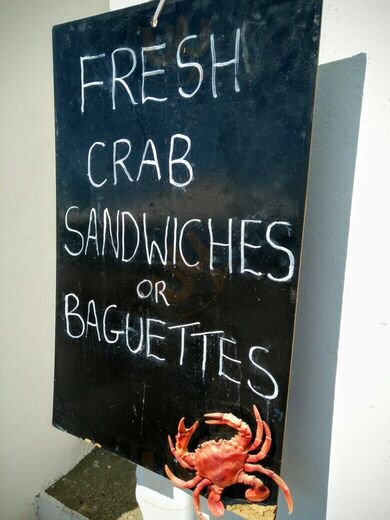 FRESH
CRAB
SANDWICHES
OR
BAGUETTES